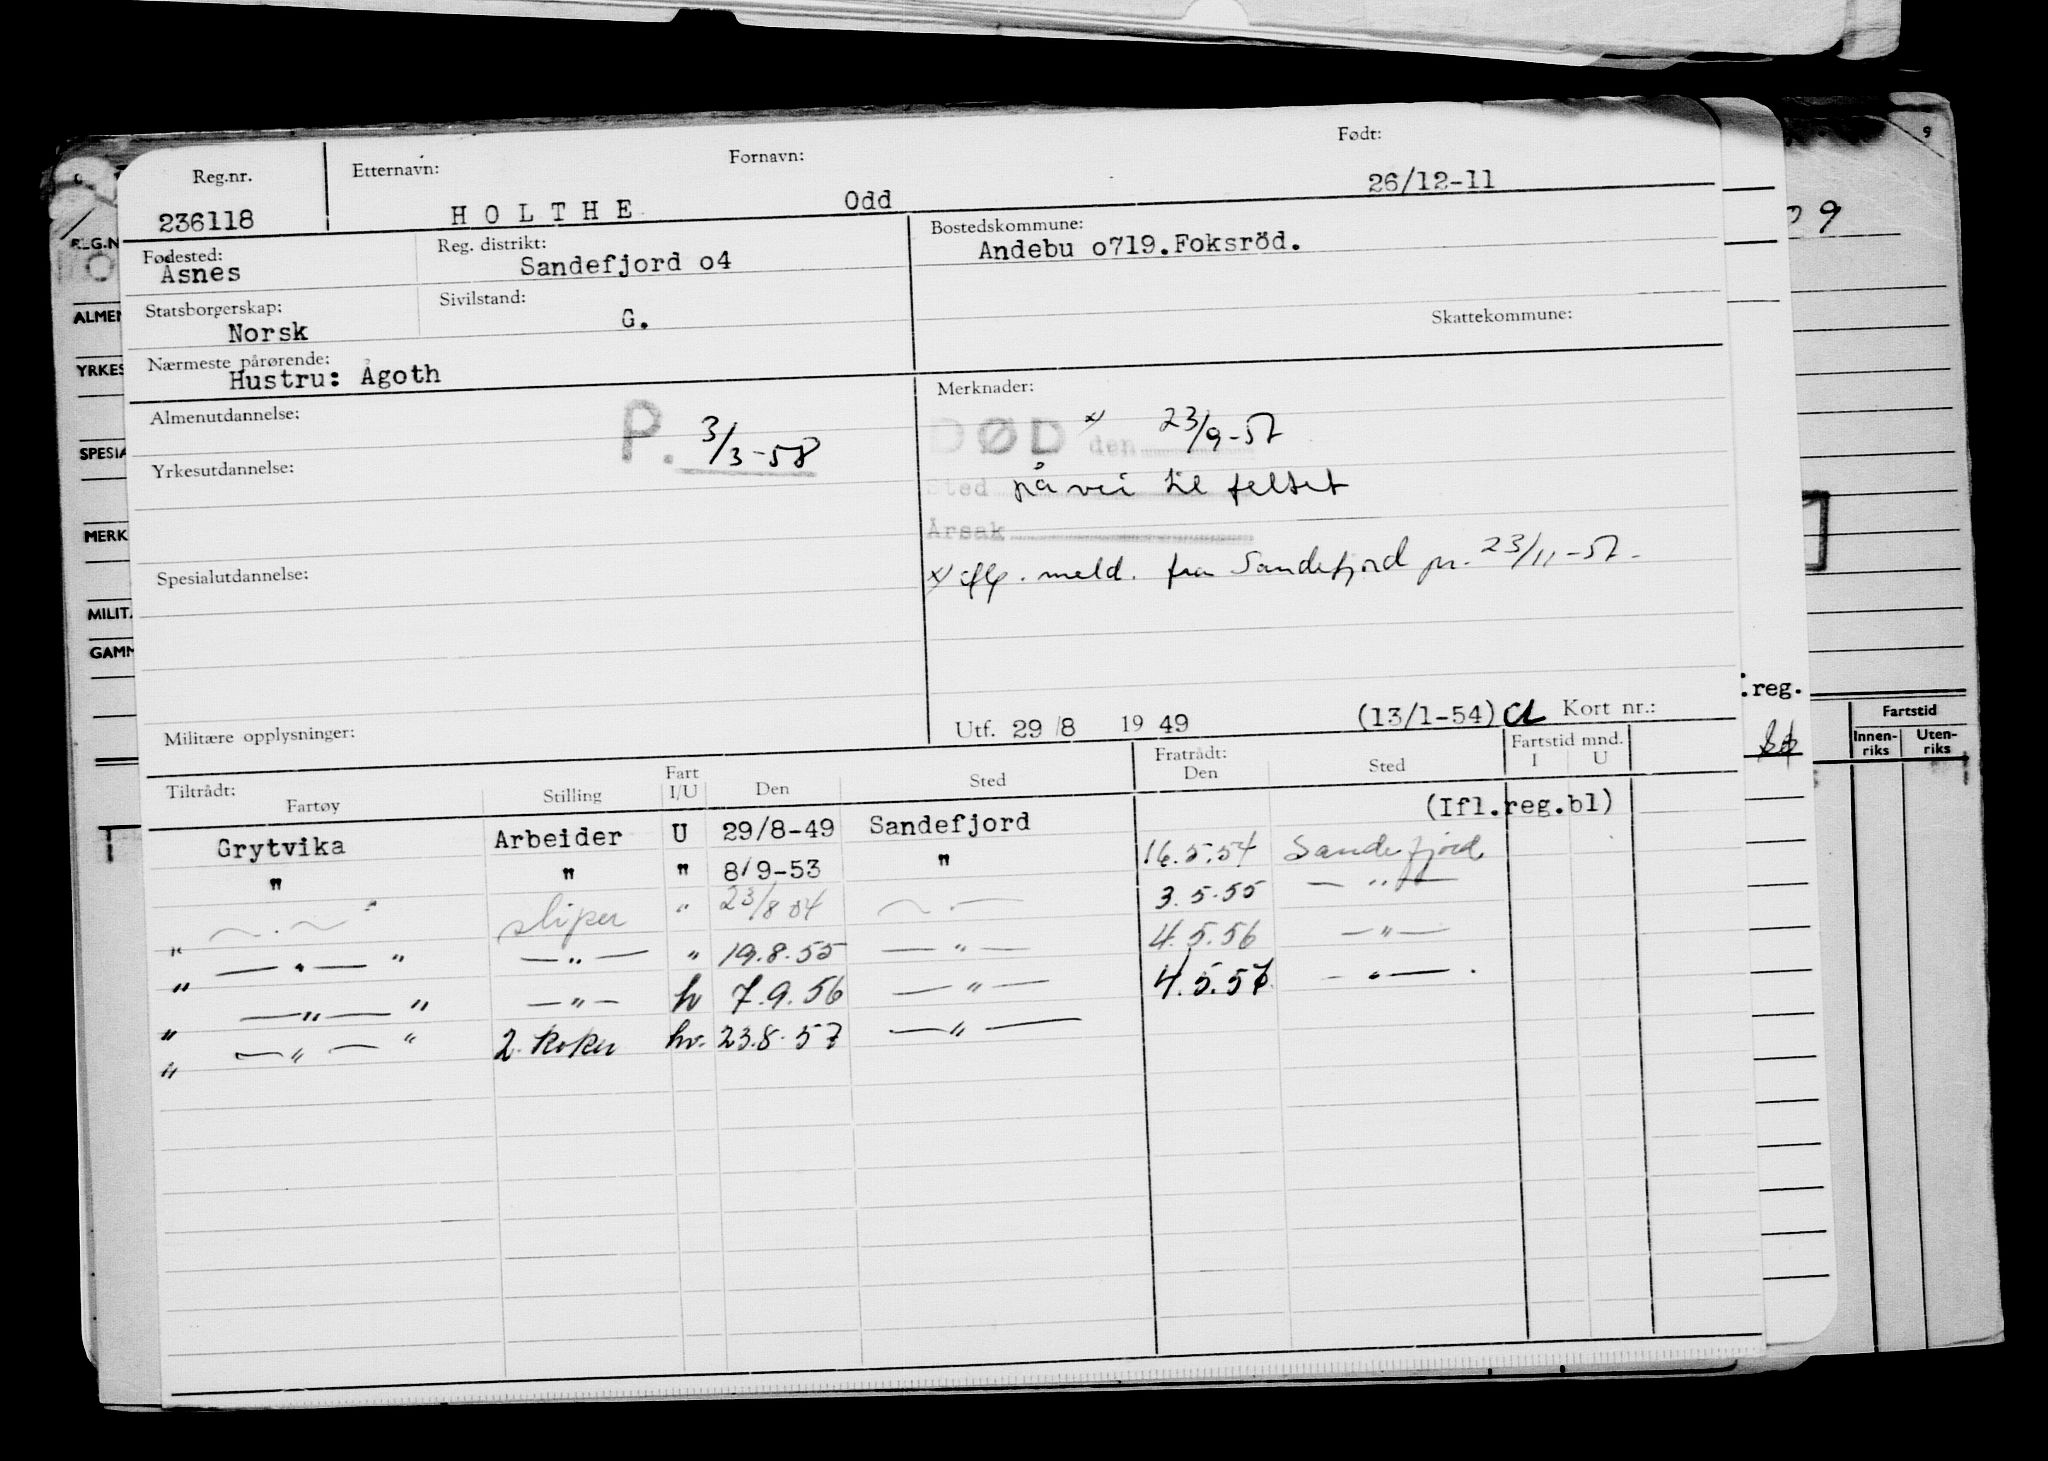 Reg.nr. Etternavn: Fornavn: Født:
236118 HOLTHE Odd 26/12-11
Fødested: Reg. distrikt: Bostedskommune:
Åsnes Sandefjord o4 Andebu o719.Foksröd.
Statsborgerskap: Sivilstand: Skattekommune:
Norsk G.
Nærmeste pårørende:
Hustru: Ågoth
Almenutdannelse: P. 3/3-58 Merknader:
DØD x) den 23/9-57
Yrkesutdannelse:
Sted på vei til feltet
Årsak
Spesialutdannelse: x) iflg. meld. fra Sandefjord pr. 23/11-57.
Militære opplysninger: Utf. 29/8 1949 (13/1-54) Kort nr.:
Tiltrådt: Fratrådt: Fartstid mnd.
Fartøy Stilling Fart I/U Den Sted Den Sted I U
(Ifl.reg.bl)
Grytvika Arbeider U 29/8-49 Sandefjord
" " " 8/9-53 " 16.5.54 Sandefjord
" — " — " sliper " 23/8 54 — " — 3.5.55 — " —
" — " — " — " — " 19.8.55 — " — 4.5.56 — " —
" — " — " — " — U 7.9.56 — " — 4.5.57 — " —
" — " — " 2. kokk 23.8.57 — " —
REG.N
ALMEN
YRKES
SPESIA
MERK
MILITÆ
GAMM
T
9
9
.reg.
Fartstid
Innen-riks Uten-riks